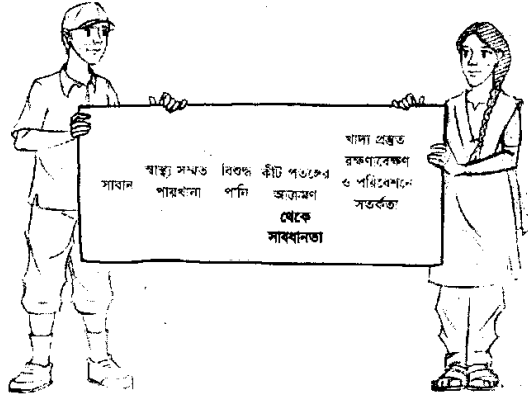 সাবান
স্বাস্থ্য সম্মত
পায়খানা
বিশুদ্ধ
পানি
কীট পতঙ্গের
আক্রমণ
থেকে
সাবধানতা
খাদ্য প্রস্তুত
রক্ষণাবেক্ষণ
ও পরিবেশনে
সতর্কতা